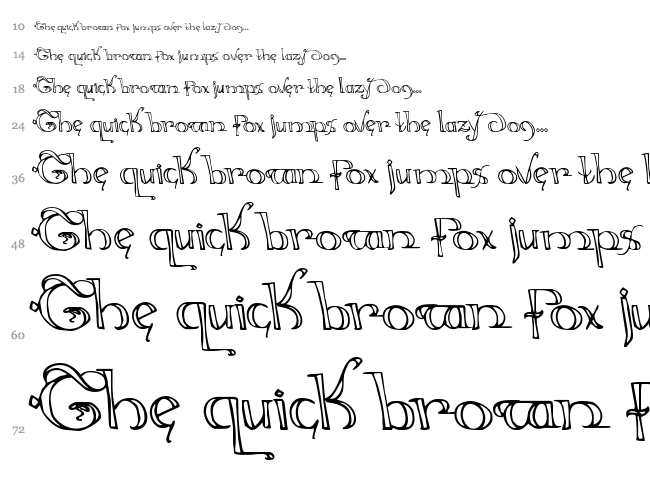 10 The quick brown fox jumps over the lazy Dog...
14 The quick brown fox jumps over the lazy Dog...
18 The quick brown fox jumps over the lazy Dog...
24 The quick brown fox jumps over the lazy Dog...
36 The quick brown fox jumps over the l
48 The quick brown fox jumps
60 The quick brown fox ju
72 The quick brown f